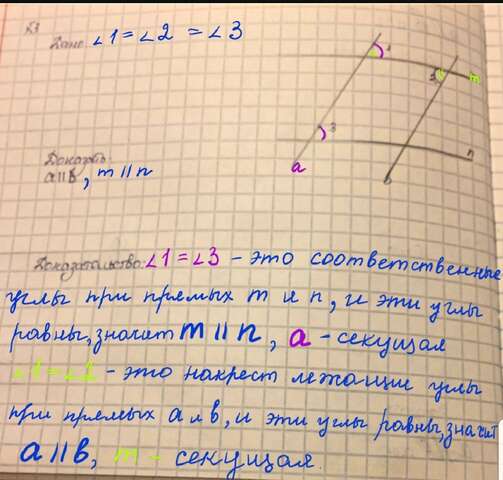 Дано: ∠1 = ∠2 = ∠3
1
2
m
3
n
a
b
Доказать:
a∥b, m∥n
Доказательство: ∠1 = ∠3 - это соответственные
углы при прямых m и n, и эти углы
равны, значит m∥n, a - секущая
∠1 = ∠2 - это накрест лежащие углы
при прямых a и b, и эти углы равны, значит
a∥b, m - секущая.